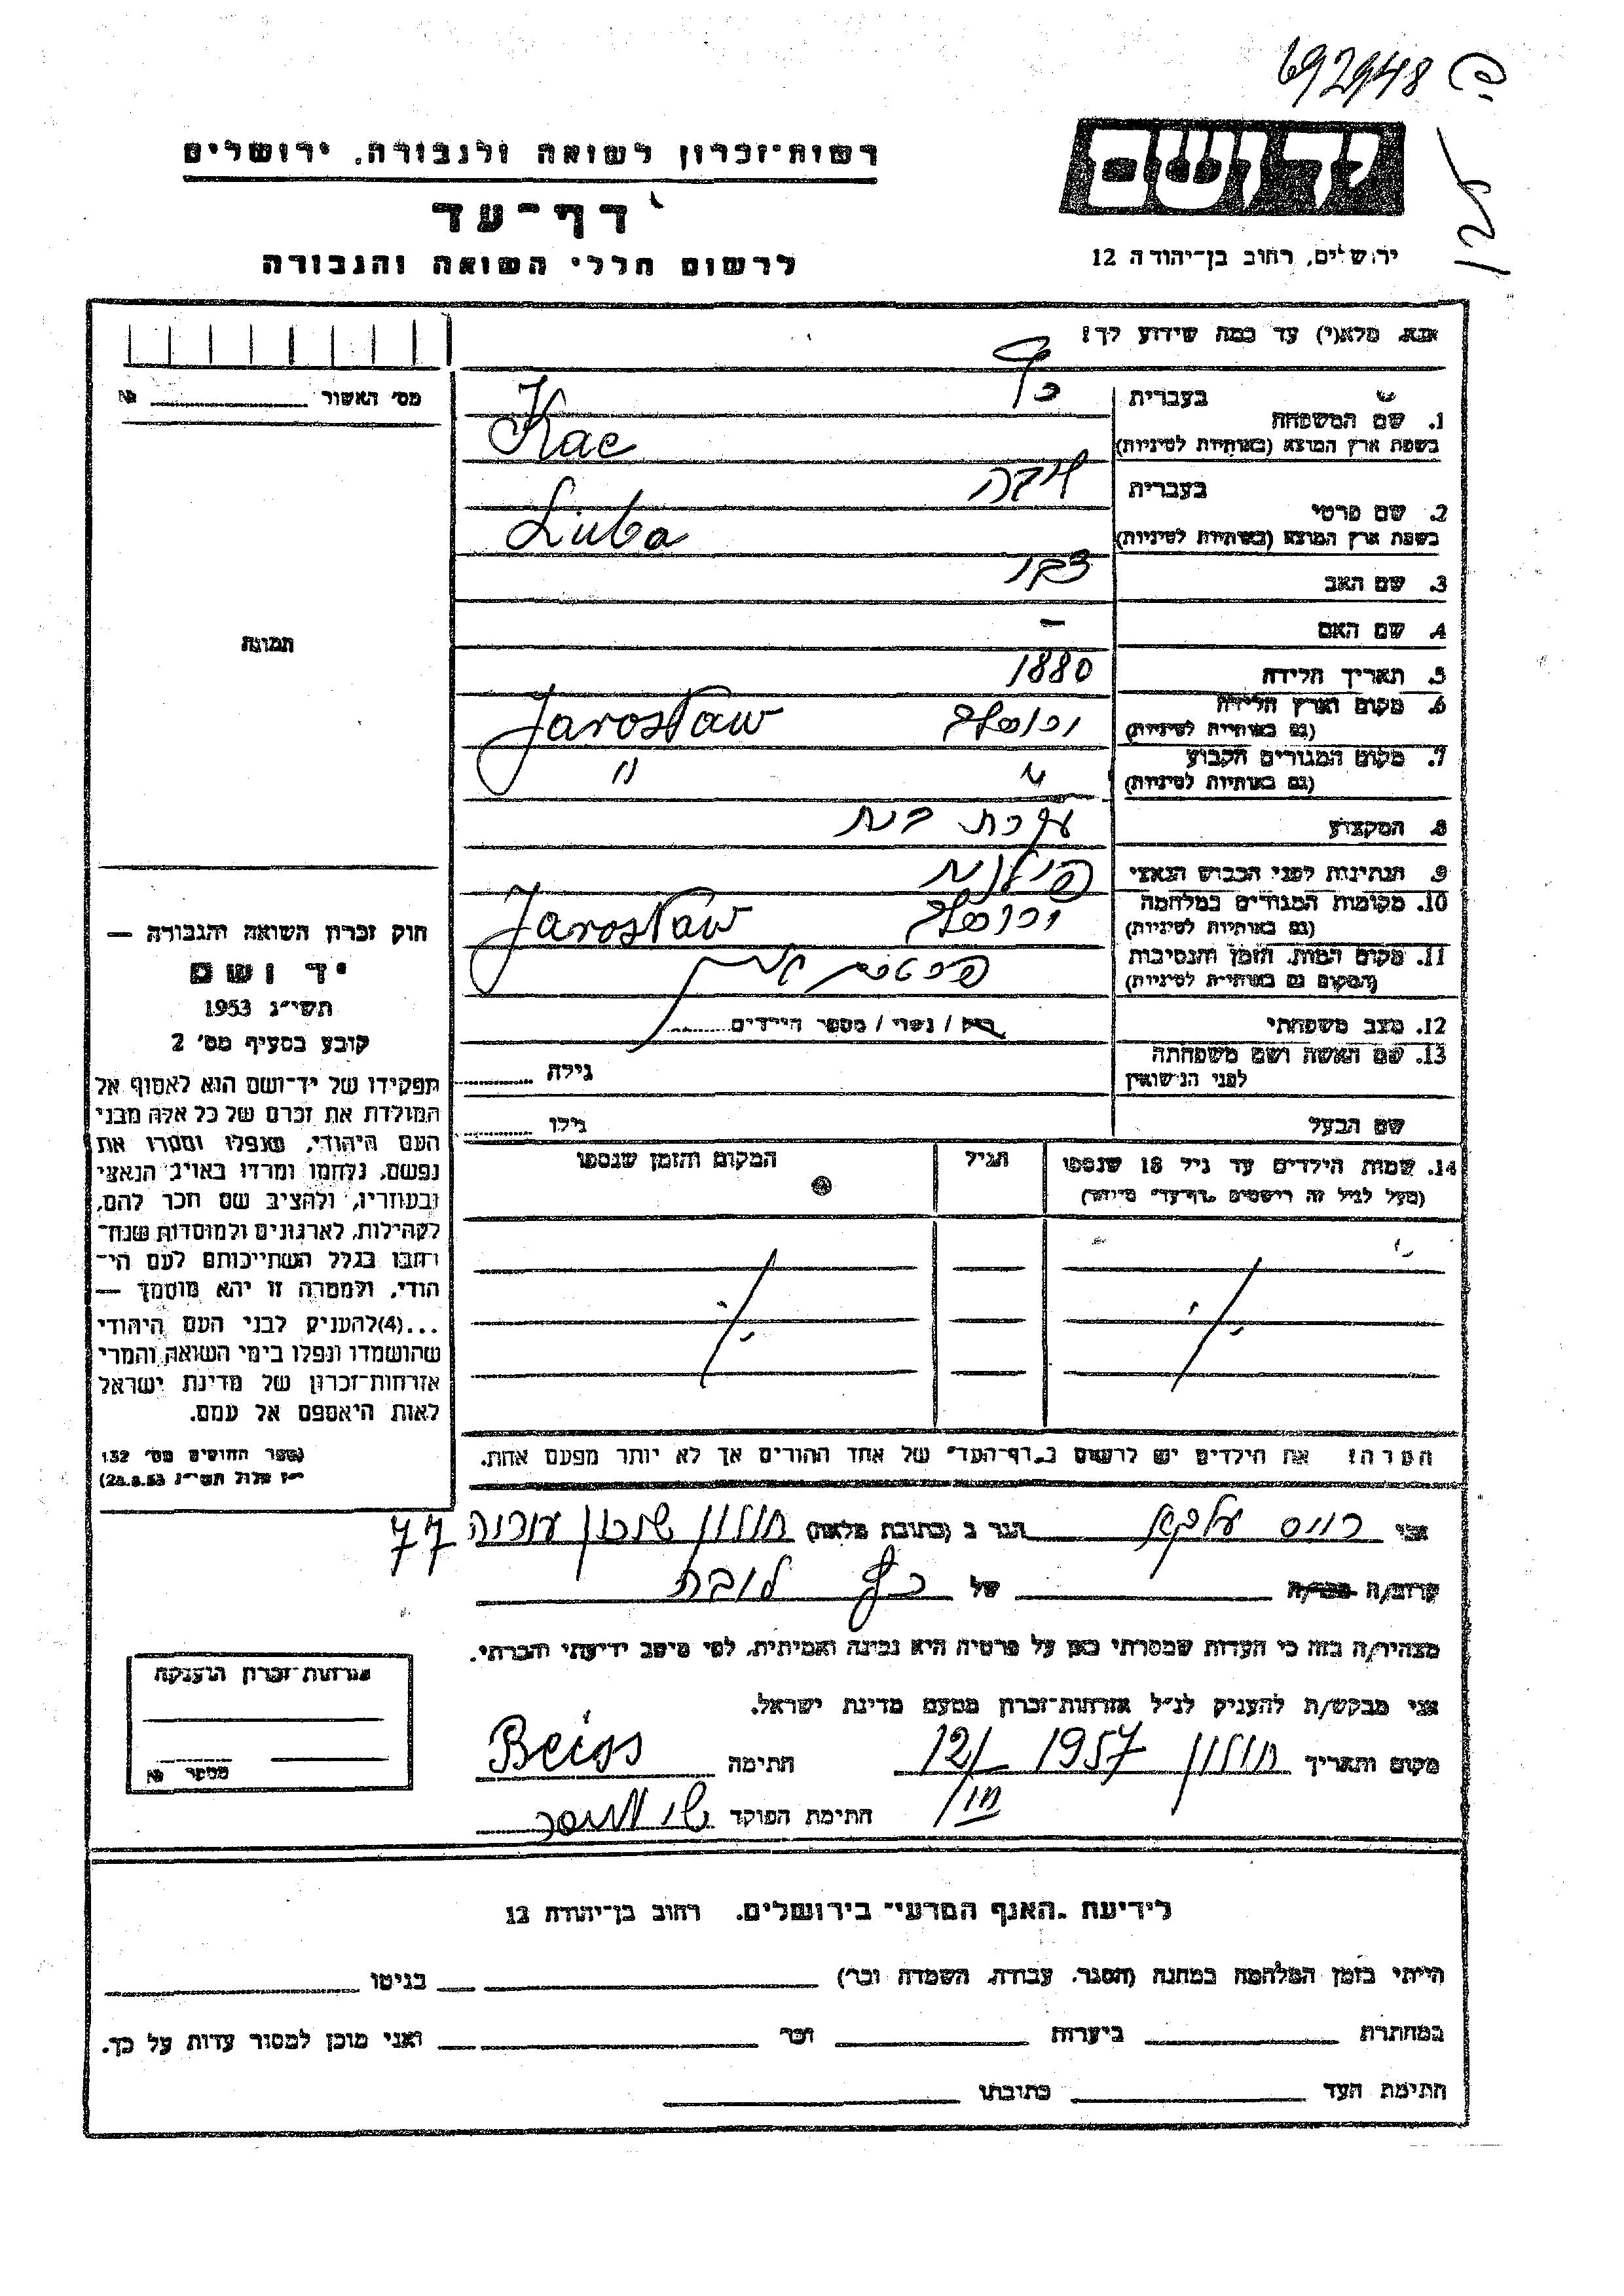 692948
רשות־זכרון לשואה ולגבורה. ירושלים
יד ושם
דף־עד
לרשום חללי השואה והגבורה
ירושלים, רחוב בן־יהודה 12
אנא, מלא(י) עד כמה שידוע לך!
מס׳ האשור № 
1. שם המשפחה
בעברית כץ
בשפת ארץ המוצא (באותיות לטיניות) Kac
2. שם פרטי
בעברית
בשפת ארץ המוצא (באותיות לטיניות) Liuba
3. שם האב
4. שם האם –
5. תאריך הלידה 1880
6. מקום וארץ הלידה
(גם באותיות לטיניות) Jarosław
7. מקום המגורים הקבוע
(גם באותיות לטיניות) " "
8. המקצוע עקרת בית
9. הנתינות לפני הכבוש הנאצי פולנית
10. מקומות המגורים במלחמה
(גם באותיות לטיניות) Jarosław
11. מקום המות, הזמן והנסיבות
(המקום גם באותיות לטיניות)
12. מצב משפחתי רוק / נשוי / מספר הילדים
13. שם האשה ושם משפחתה
לפני הנישואין גילה
שם הבעל גילו
14. שמות הילדים עד גיל 18 שנספו
(מעל לגיל זה רישמים „דף־עד״ מיוחד)
הגיל
המקום והזמן שנספו
הערה! את הילדים יש לרשום ב„דף־העד״ של אחד ההורים אך לא יותר מפעם אחת.
תמונה
חוק זכרון השואה והגבורה —
יד ושם
תשי״ג 1953
קובע בסעיף מס׳ 2
תפקידו של יד־ושם הוא לאסוף אל
המולדת את זכרם של כל אלה מבני
העם היהודי, שנפלו ומסרו את
נפשם, נלחמו ומרדו באויב הנאצי
ובעוזריו, ולהציב שם וזכר להם,
לקהילות, לארגונים ולמוסדות שנח־
רבו בגלל השתייכותם לעם הי־
הודי, ולמטרה זו יהא מוסמך —
...(4)להעניק לבני העם היהודי
שהושמדו ונפלו בימי השואה והמרי
אזרחות־זכרון של מדינת ישראל
לאות היאספם אל עמם.
(ספר החוקים מס׳ 132
י״ז אלול תשי״ג 28.8.53)
אני הגר ב (כתובת מלאה) חולון שכון 77
קרוב/ה מכר/ה של כץ
מצהיר/ה בזה כי העדות שמסרתי כאן על פרטיה היא נכונה ואמיתית, לפי מיטב ידיעתי והכרתי.
אני מבקש/ת להעניק לנ״ל אזרחות־זכרון מטעם מדינת ישראל.
מקום ותאריך חולון 1957 12/ III חתימה Beiss
חתימת הפוקד
אזרחות־זכרון הוענקה
מספר №
לידיעת „האגף המדעי״ בירושלים. רחוב בן־יהודה 12
הייתי בזמן המלחמה במחנה (הסגר, עבודה, השמדה וכו׳) בגיטו
במחתרת ביערות וכו׳ ואני מוכן למסור עדות על כך.
חתימת העד כתובתו